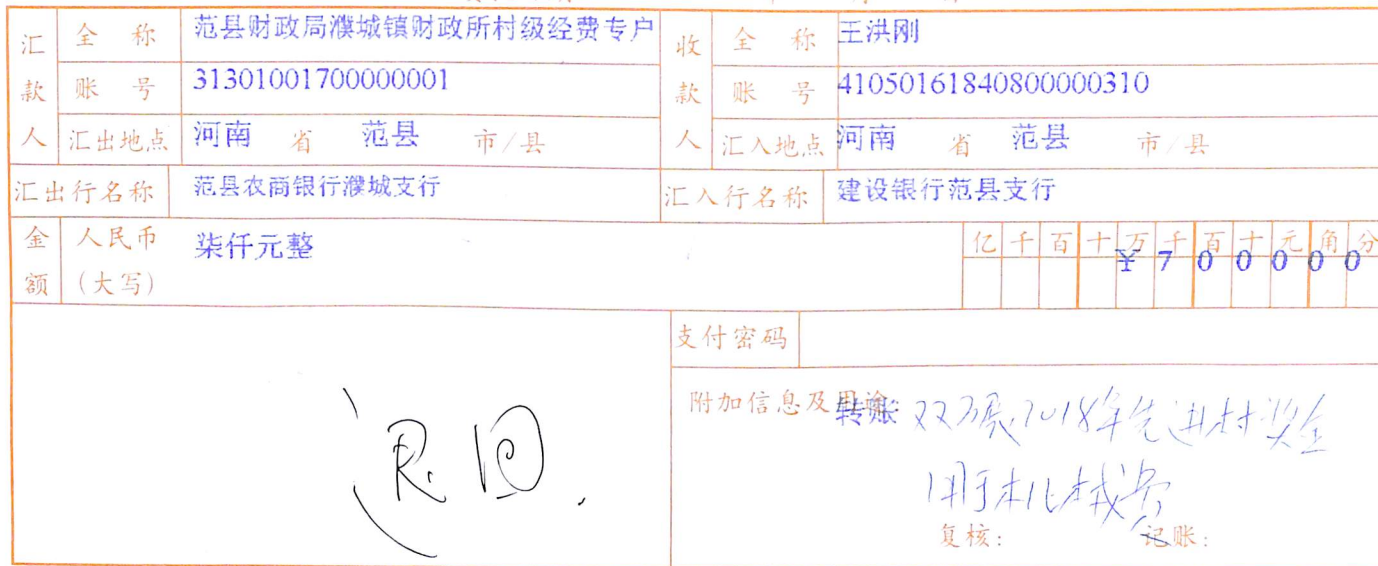 汇款人 全称 范县财政局濮城镇财政所村级经费专户 收款人 全称 王洪刚
账号 31301001700000001 账号 41050161840800000310
汇出地点 河南 省 范县 市/县 汇入地点 河南 省 范县 市/县
汇出行名称 范县农商银行濮城支行 汇入行名称 建设银行范县支行
金额 人民币(大写) 柒仟元整 亿千百十万千百十元角分
¥700000
支付密码
附加信息及用途: 转账 2018年先进村奖金
用于机械费
退回.
复核: 记账: